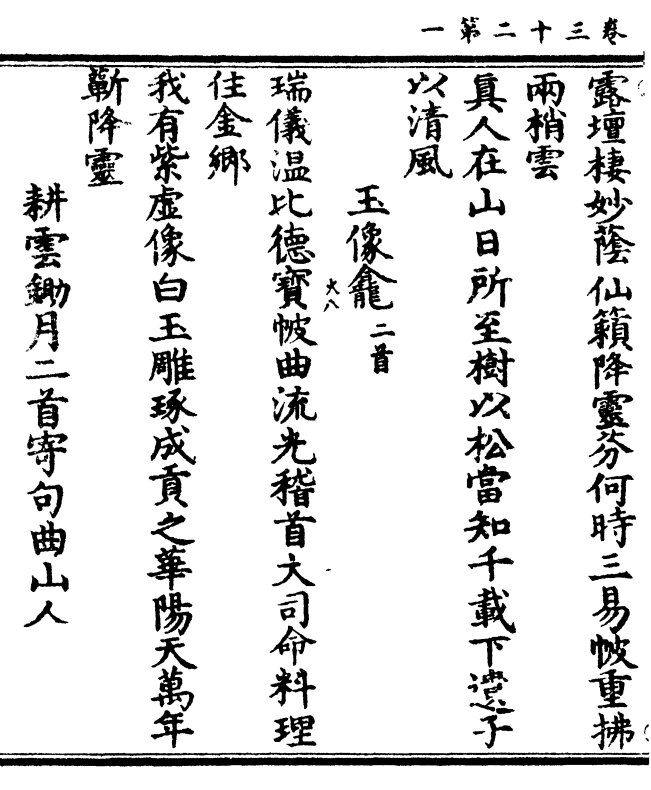 卷三十二第一
露壇棲妙蔭仙籟降靈芬何時三易帔重拂
兩梢雲
眞人在山日所至樹以松當知千載下遺子
以清風
玉像龕二首
瑞儀温比德寶帔曲流光稽首大司命料理
住金鄉
我有紫虛像白玉雕琢成貢之華陽天萬年
蘄降靈
耕雲鋤月二首寄句曲山人